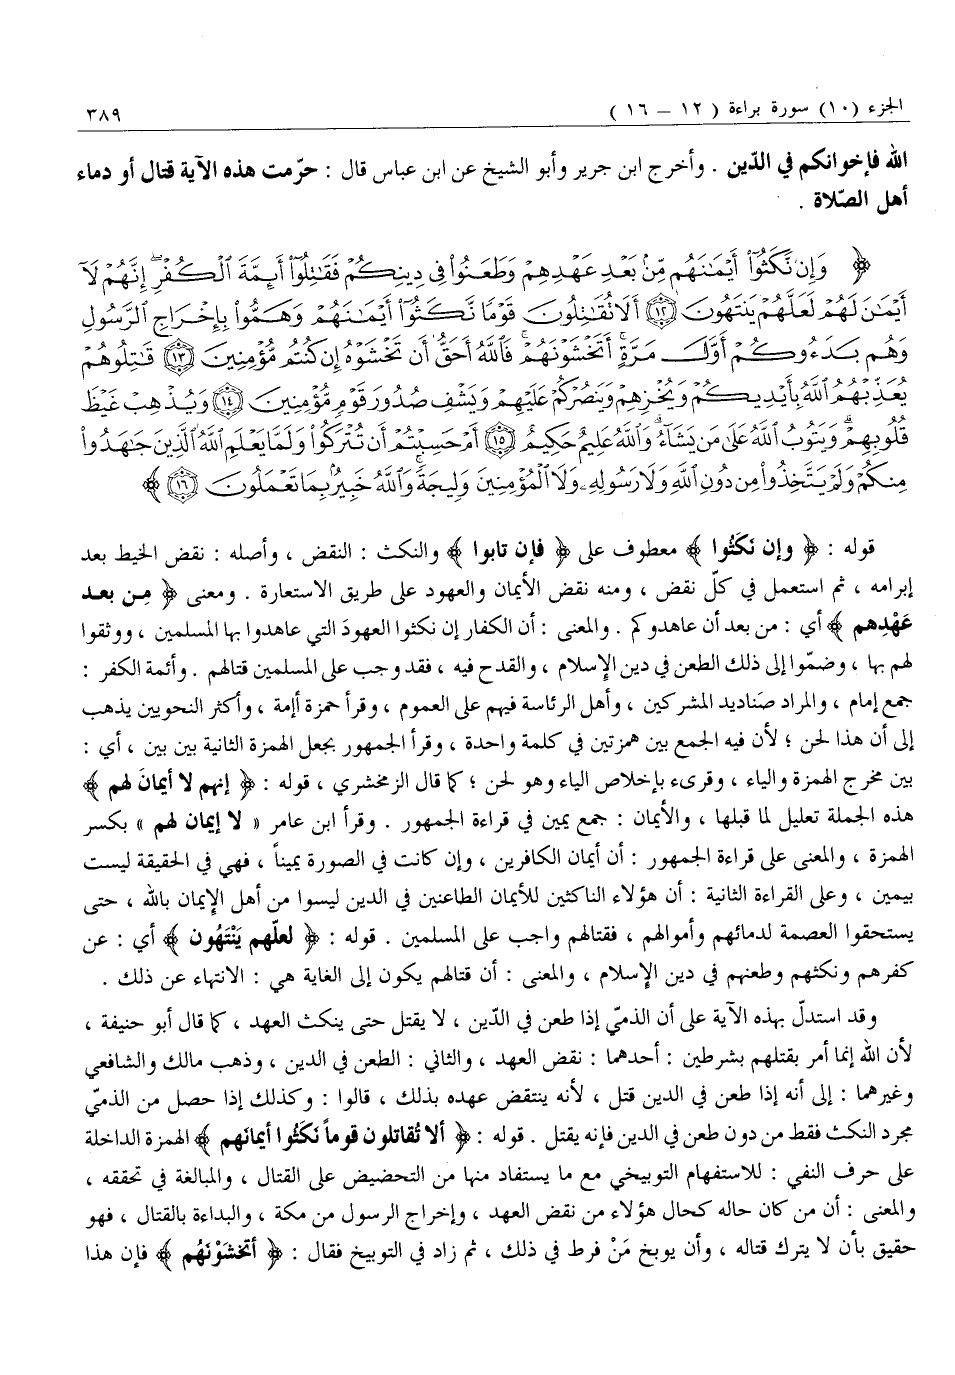 الجزء (١٠) سورة براءة ( ١٢ – ١٦ ) ٣٨٩
الله فإخوانكم في الدّين . وأخرج ابن جرير وأبو الشيخ عن ابن عباس قال : حرّمت هذه الآية قتال أو دماء
أهل الصّلاة .
﴿ وَإِن نَّكَثُوٓا۟ أَيْمَٰنَهُم مِّنۢ بَعْدِ عَهْدِهِمْ وَطَعَنُوا۟ فِى دِينِكُمْ فَقَٰتِلُوٓا۟ أَئِمَّةَ ٱلْكُفْرِ ۙ إِنَّهُمْ لَآ
أَيْمَٰنَ لَهُمْ لَعَلَّهُمْ يَنتَهُونَ ۝١٢ أَلَا تُقَٰتِلُونَ قَوْمًا نَّكَثُوٓا۟ أَيْمَٰنَهُمْ وَهَمُّوا۟ بِإِخْرَاجِ ٱلرَّسُولِ
وَهُم بَدَءُوكُمْ أَوَّلَ مَرَّةٍ ۚ أَتَخْشَوْنَهُمْ ۚ فَٱللَّهُ أَحَقُّ أَن تَخْشَوْهُ إِن كُنتُم مُّؤْمِنِينَ ۝١٣ قَٰتِلُوهُمْ
يُعَذِّبْهُمُ ٱللَّهُ بِأَيْدِيكُمْ وَيُخْزِهِمْ وَيَنصُرْكُمْ عَلَيْهِمْ وَيَشْفِ صُدُورَ قَوْمٍ مُّؤْمِنِينَ ۝١٤ وَيُذْهِبْ غَيْظَ
قُلُوبِهِمْ ۗ وَيَتُوبُ ٱللَّهُ عَلَىٰ مَن يَشَآءُ ۗ وَٱللَّهُ عَلِيمٌ حَكِيمٌ ۝١٥ أَمْ حَسِبْتُمْ أَن تُتْرَكُوا۟ وَلَمَّا يَعْلَمِ ٱللَّهُ ٱلَّذِينَ جَٰهَدُوا۟
مِنكُمْ وَلَمْ يَتَّخِذُوا۟ مِن دُونِ ٱللَّهِ وَلَا رَسُولِهِۦ وَلَا ٱلْمُؤْمِنِينَ وَلِيجَةً ۚ وَٱللَّهُ خَبِيرٌۢ بِمَا تَعْمَلُونَ ۝١٦ ﴾
قوله : ﴿ وإن نَكَثُوا ﴾ معطوف على ﴿ فإن تابوا ﴾ والنكث : النقض ، وأصله : نقض الخيط بعد
إبرامه ، ثم استعمل في كلّ نقض ، ومنه نقض الأيمان والعهود على طريق الاستعارة . ومعنى ﴿ مِن بعد
عَهْدِهم ﴾ أي : من بعد أن عاهدوكم . والمعنى : أن الكفار إن نكثوا العهودَ التي عاهدوا بها المسلمين ، ووثقوا
لهم بها ، وضمّوا إلى ذلك الطعن في دين الإسلام ، والقدح فيه ، فقد وجب على المسلمين قتالهم . وأئمة الكفر :
جمع إمام ، والمراد صَناديد المشركين ، وأهل الرئاسة فيهم على العموم ، وقرأ حمزة أإمة ، وأكثر النحويين يذهب
إلى أن هذا لحن ؛ لأن فيه الجمع بين همزتين في كلمة واحدة ، وقرأ الجمهور بجعل الهمزة الثانية بين بين ، أي :
بين مخرج الهمزة والياء ، وقرىء بإخلاص الياء وهو لحن ؛ كما قال الزمخشري ، قوله : ﴿ إنهم لا أيمانَ لهم ﴾
هذه الجملة تعليل لما قبلها ، والأيمان : جمع يمين في قراءة الجمهور . وقرأ ابن عامر « لا إيمان لهم » بكسر
الهمزة ، والمعنى على قراءة الجمهور : أن أيمان الكافرين ، وإن كانت في الصورة يميناً ، فهي في الحقيقة ليست
بيمين ، وعلى القراءة الثانية : أن هؤلاء الناكثين للأيمان الطاعنين في الدين ليسوا من أهل الإيمان بالله ، حتى
يستحقوا العصمة لدمائهم وأموالهم ، فقتالهم واجب على المسلمين . قوله : ﴿ لعلّهم يَنْتَهُون ﴾ أي : عن
كفرهم ونكثهم وطعنهم في دين الإسلام ، والمعنى : أن قتالهم يكون إلى الغاية هي : الانتهاء عن ذلك .
وقد استدلّ بهذه الآية على أن الذميّ إذا طعن في الدّين ، لا يقتل حتى ينكث العهد ، كما قال أبو حنيفة ،
لأن الله إنما أمر بقتلهم بشرطين : أحدهما : نقض العهد ، والثاني : الطعن في الدين ، وذهب مالك والشافعي
وغيرهما : إلى أنه إذا طعن في الدين قتل ، لأنه ينتقض عهده بذلك ، قالوا : وكذلك إذا حصل من الذميّ
مجرد النكث فقط من دون طعن في الدين فإنه يقتل . قوله : ﴿ ألا تُقاتلون قوماً نَكَثُوا أيمانَهم ﴾ الهمزة الداخلة
على حرف النفي : للاستفهام التوبيخي مع ما يستفاد منها من التحضيض على القتال ، والمبالغة في تحققه ،
والمعنى : أن من كان حاله كحال هؤلاء من نقض العهد ، وإخراج الرسول من مكة ، والبداءة بالقتال ، فهو
حقيق بأن لا يترك قتاله ، وأن يوبخ مَنْ فرط في ذلك ، ثم زاد في التوبيخ فقال : ﴿ أتخشَوْنَهُم ﴾ فإن هذا